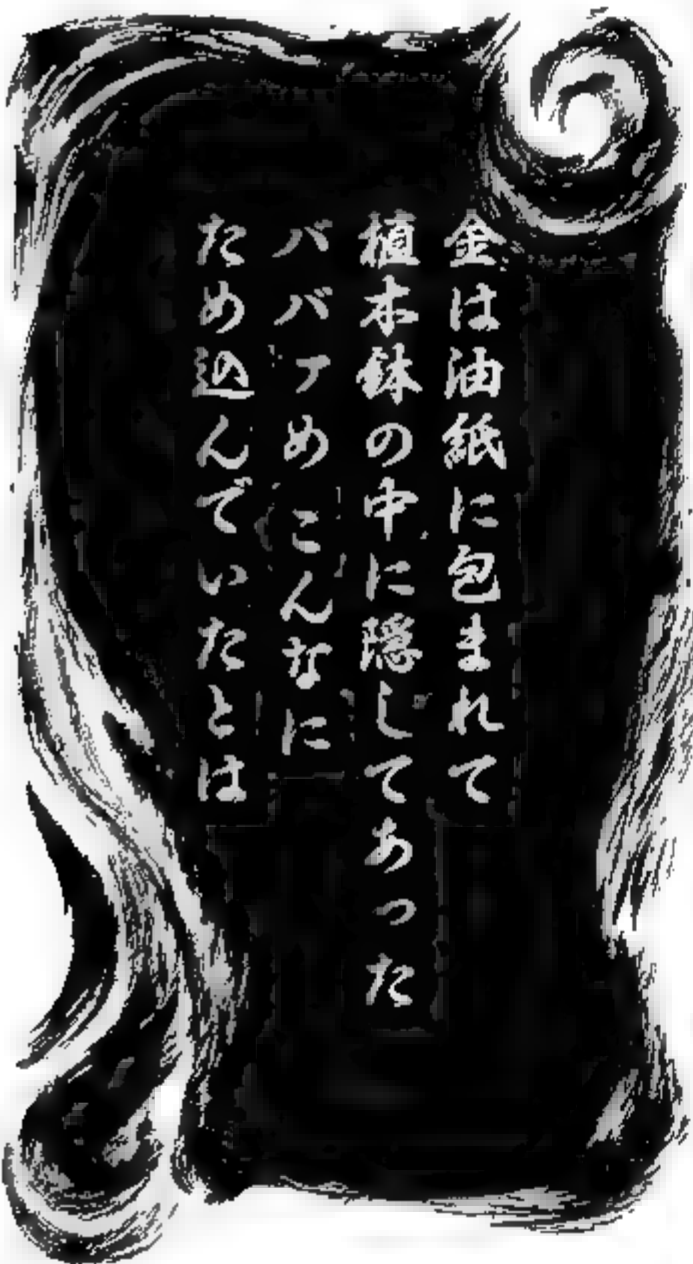 金は油紙に包まれて
植木鉢の中に隠してあった
ババァめ こんなに
ため込んでいたとは